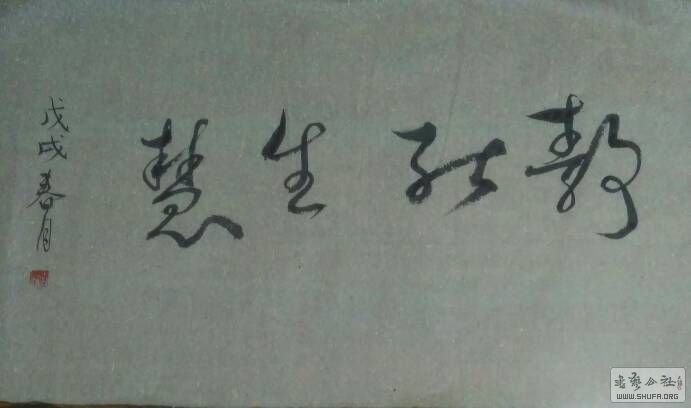 静能生慧
戊戌春月
书艺公社
WWW.SHUFA.ORG